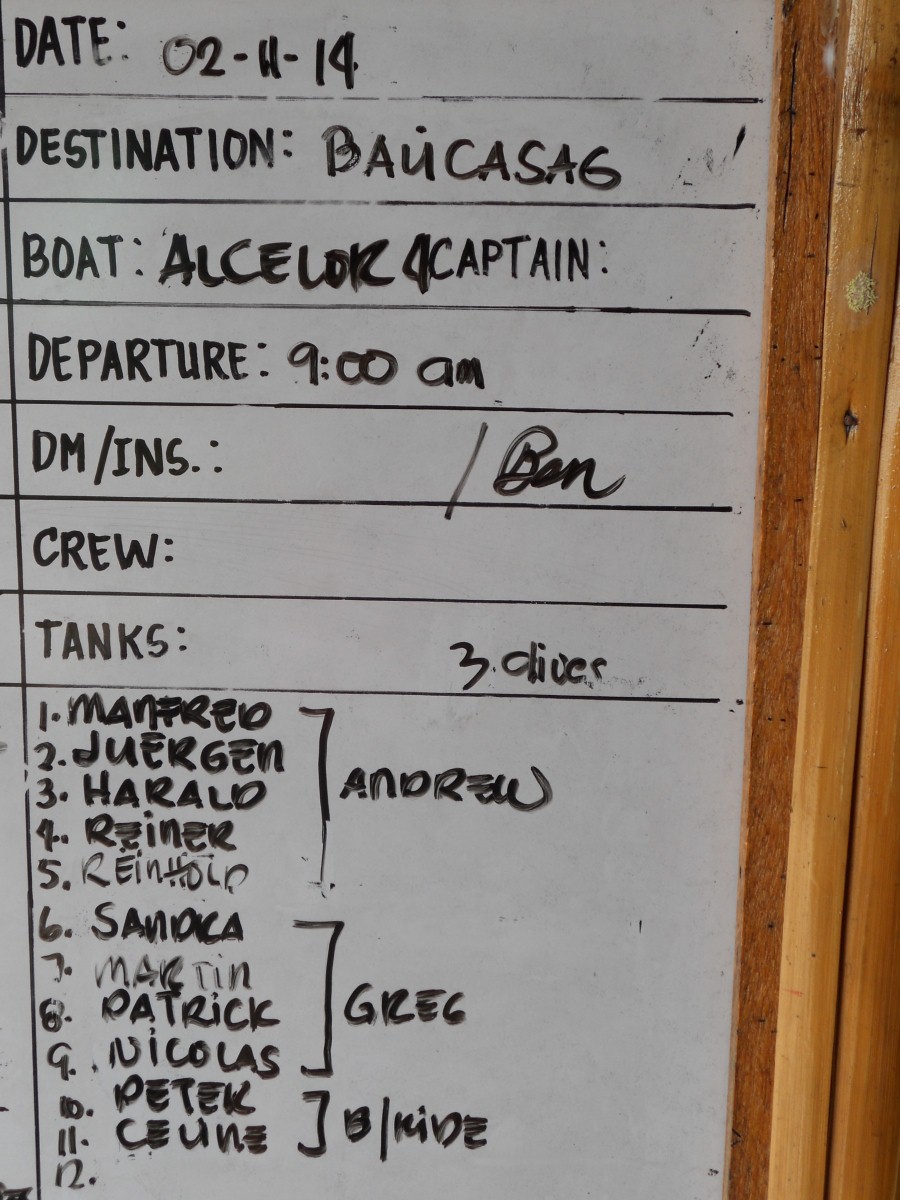 DATE: 02-11-14
DESTINATION: BALICASAG
BOAT: ALCELOR 4 CAPTAIN:
DEPARTURE: 9:00 am
DM/INS.: / Ben
CREW:
TANKS: 3. dives
1. MANFRED
2. JUERGEN
3. HARALD
ANDREW
4. REINER
5. REINHOLD
6. SANDRA
7. MARTIN
8. PATRICK
GREG
9. NICOLAS
10. PETER
11. CELINE
B/RIDE
12.